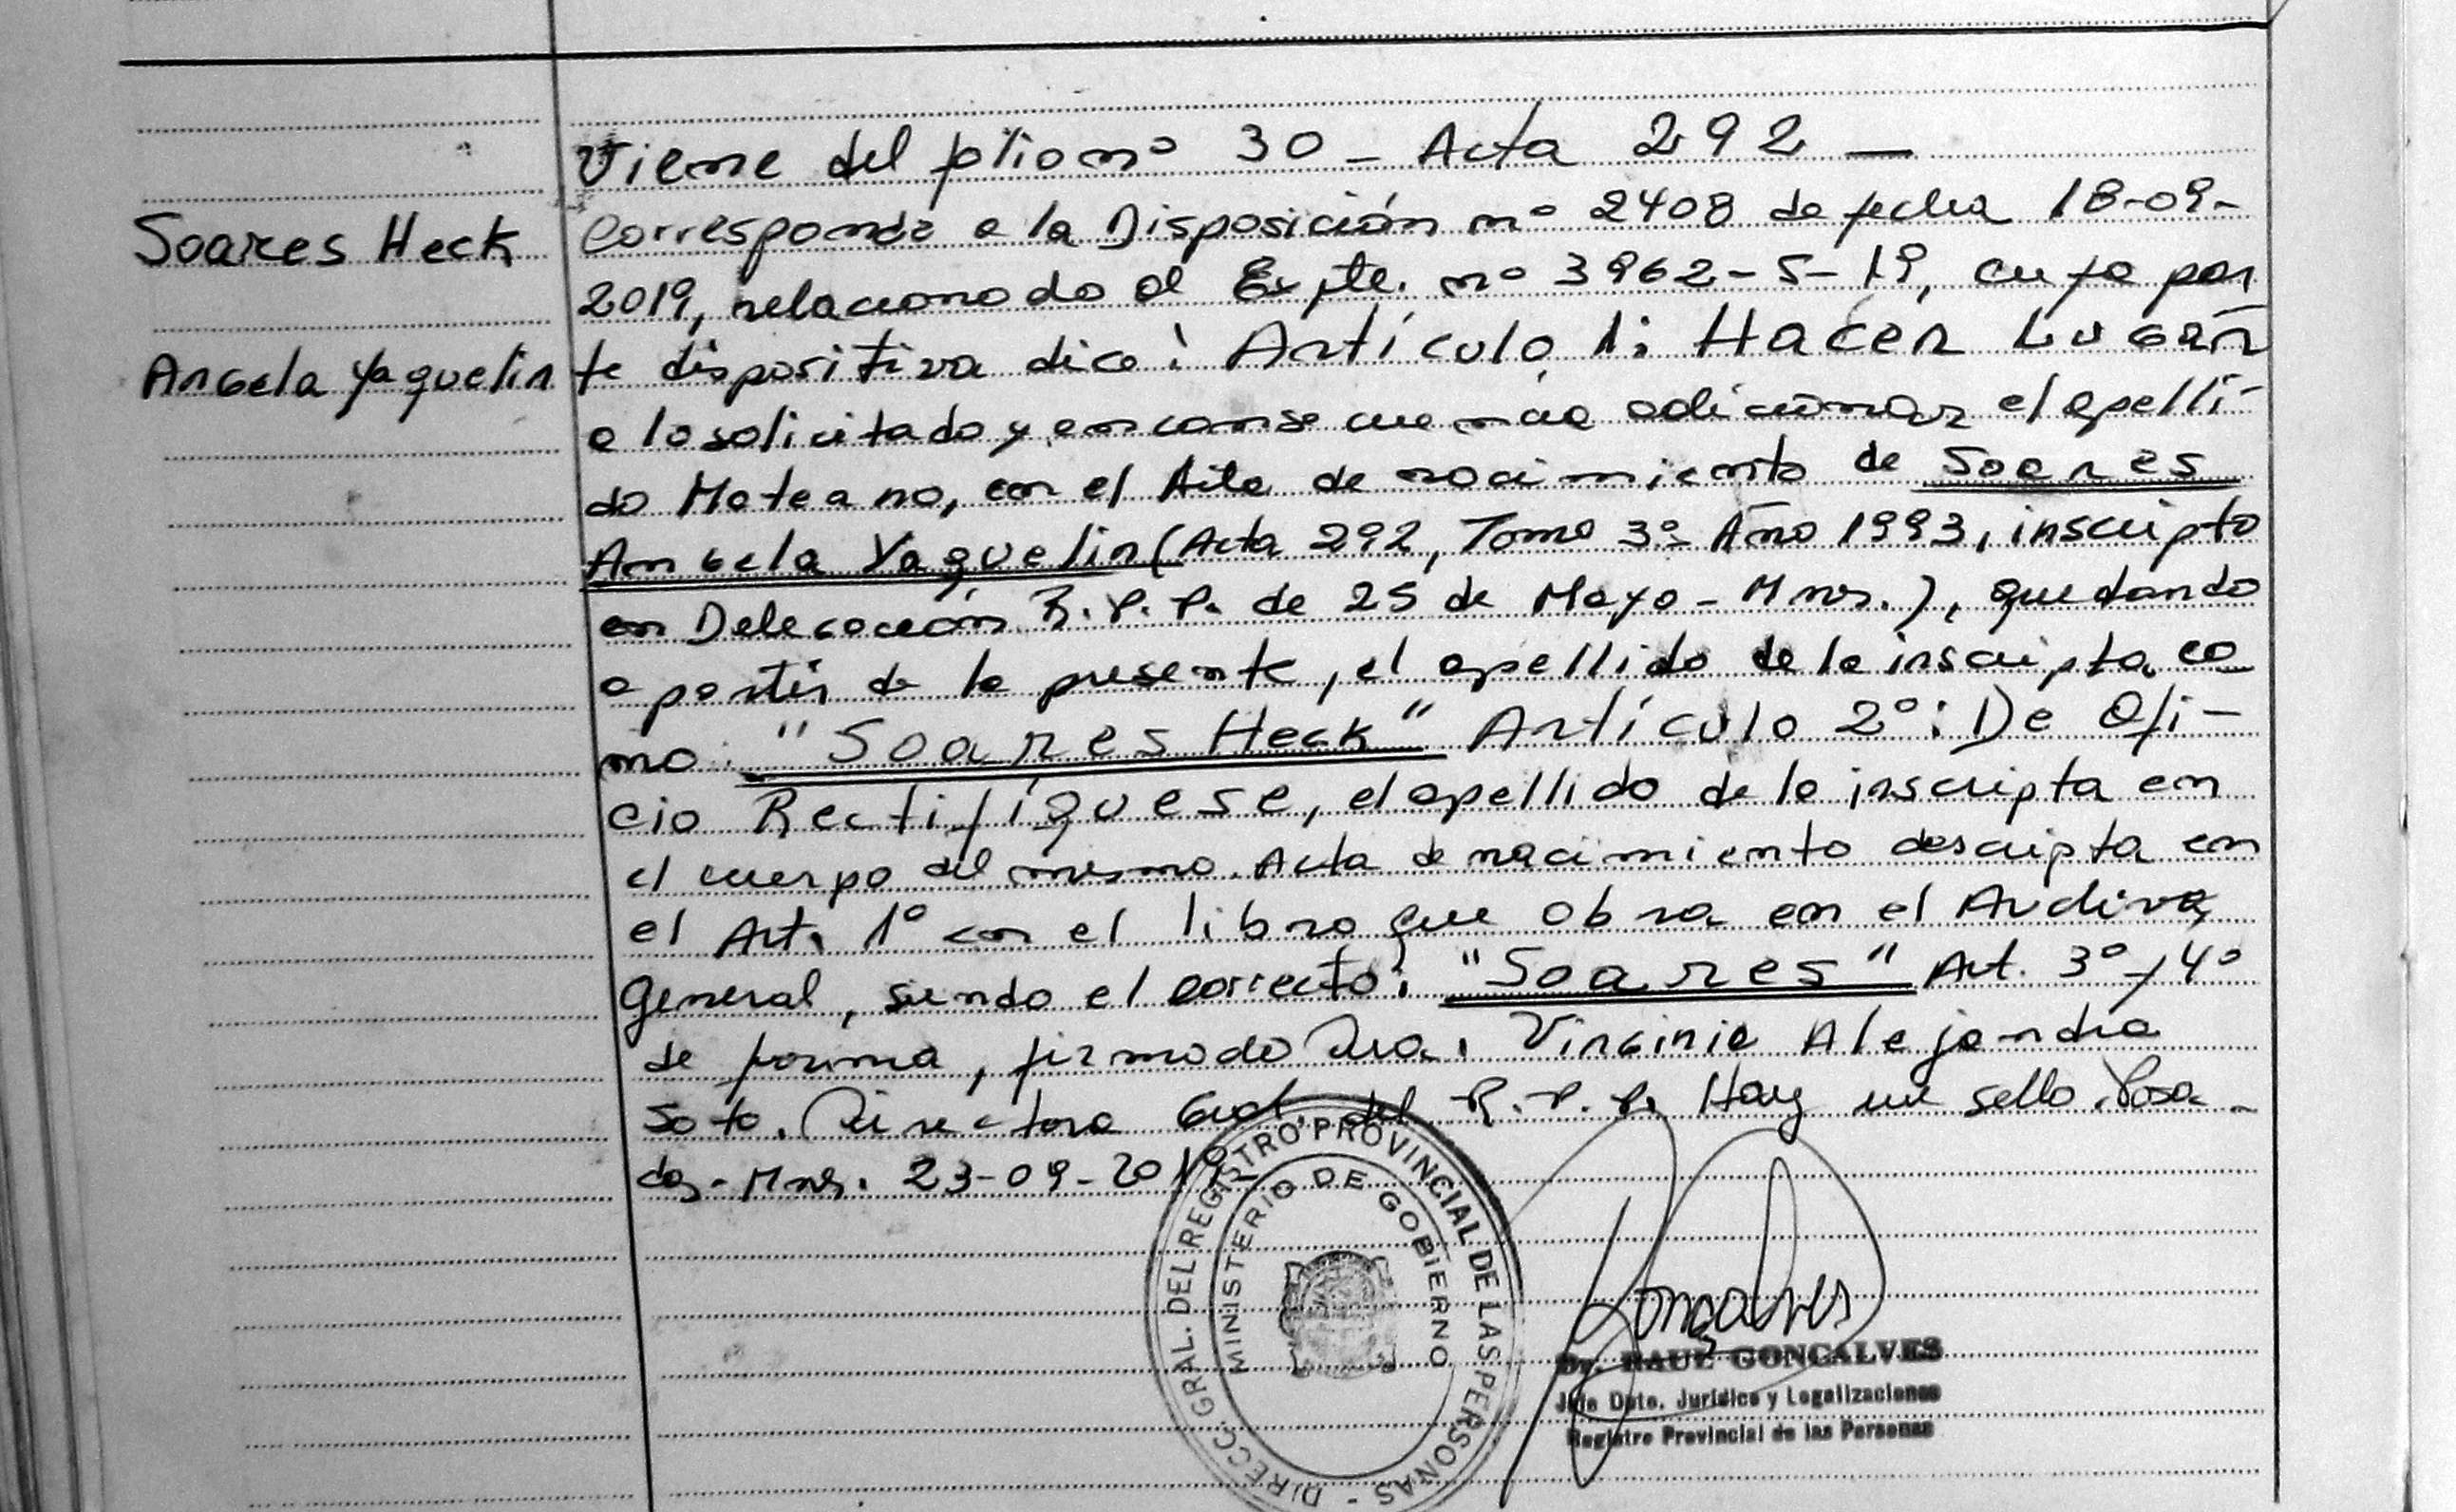 Viene del folio nº 30 - Acta 292 —
Soares Heck
Angela Yaquelin
Corresponde a la Disposición nº 2408 de fecha 18-09-
2019, relacionado al Expte. nº 3962-S-19, cuya par
te dispositiva dice: Artículo 1: Hacer Lugar
a lo solicitado y en consecuencia adicionar el apelli-
do Materno, en el Acta de nacimiento de Soares
Angela Yaquelin (Acta 292, Tomo 3º Año 1993, inscripto
en Delegación R.P.P. de 25 de Mayo - Mnes.), quedando
a partir de la presente, el apellido de la inscripta co
mo: "Soares Heck" Artículo 2º: De Ofi-
cio Rectifíquese, el apellido de la inscripta en
el cuerpo del mismo Acta de nacimiento descripta en
el Art. 1º con el libro que obra en el Archivo
General, siendo el correcto: "Soares" Art. 3º y 4º
de forma, firmado Dra. Virginia Alejandra
Soto. Directora Gral. del R.P.P. Hay un sello. Posa-
das - Mnes. 23-09-2019
DIRECC. GRAL. DEL REGISTRO PROVINCIAL DE LAS PERSONAS -
MINISTERIO DE GOBIERNO
Gonçalves
Dr. RAUL GONCALVES
Jefe Dpto. Jurídico y Legalizaciones
Registro Provincial de las Personas